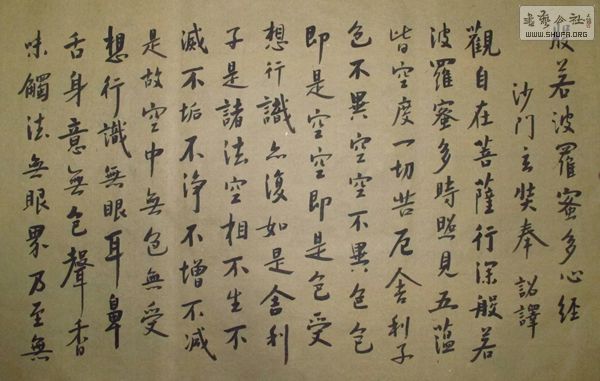 般若波羅蜜多心經
沙门玄奘奉 詔譯
觀自在菩薩行深般若
波羅蜜多時照見五蘊
皆空度一切苦厄舍利子
色不異空空不異色色
即是空空即是色受
想行識亦復如是舍利
子是諸法空相不生不
滅不垢不淨不增不减
是故空中無色無受
想行識無眼耳鼻
舌身意無色聲香
味觸法無眼界乃至無
書藝公社
WWW.SHUFA.ORG